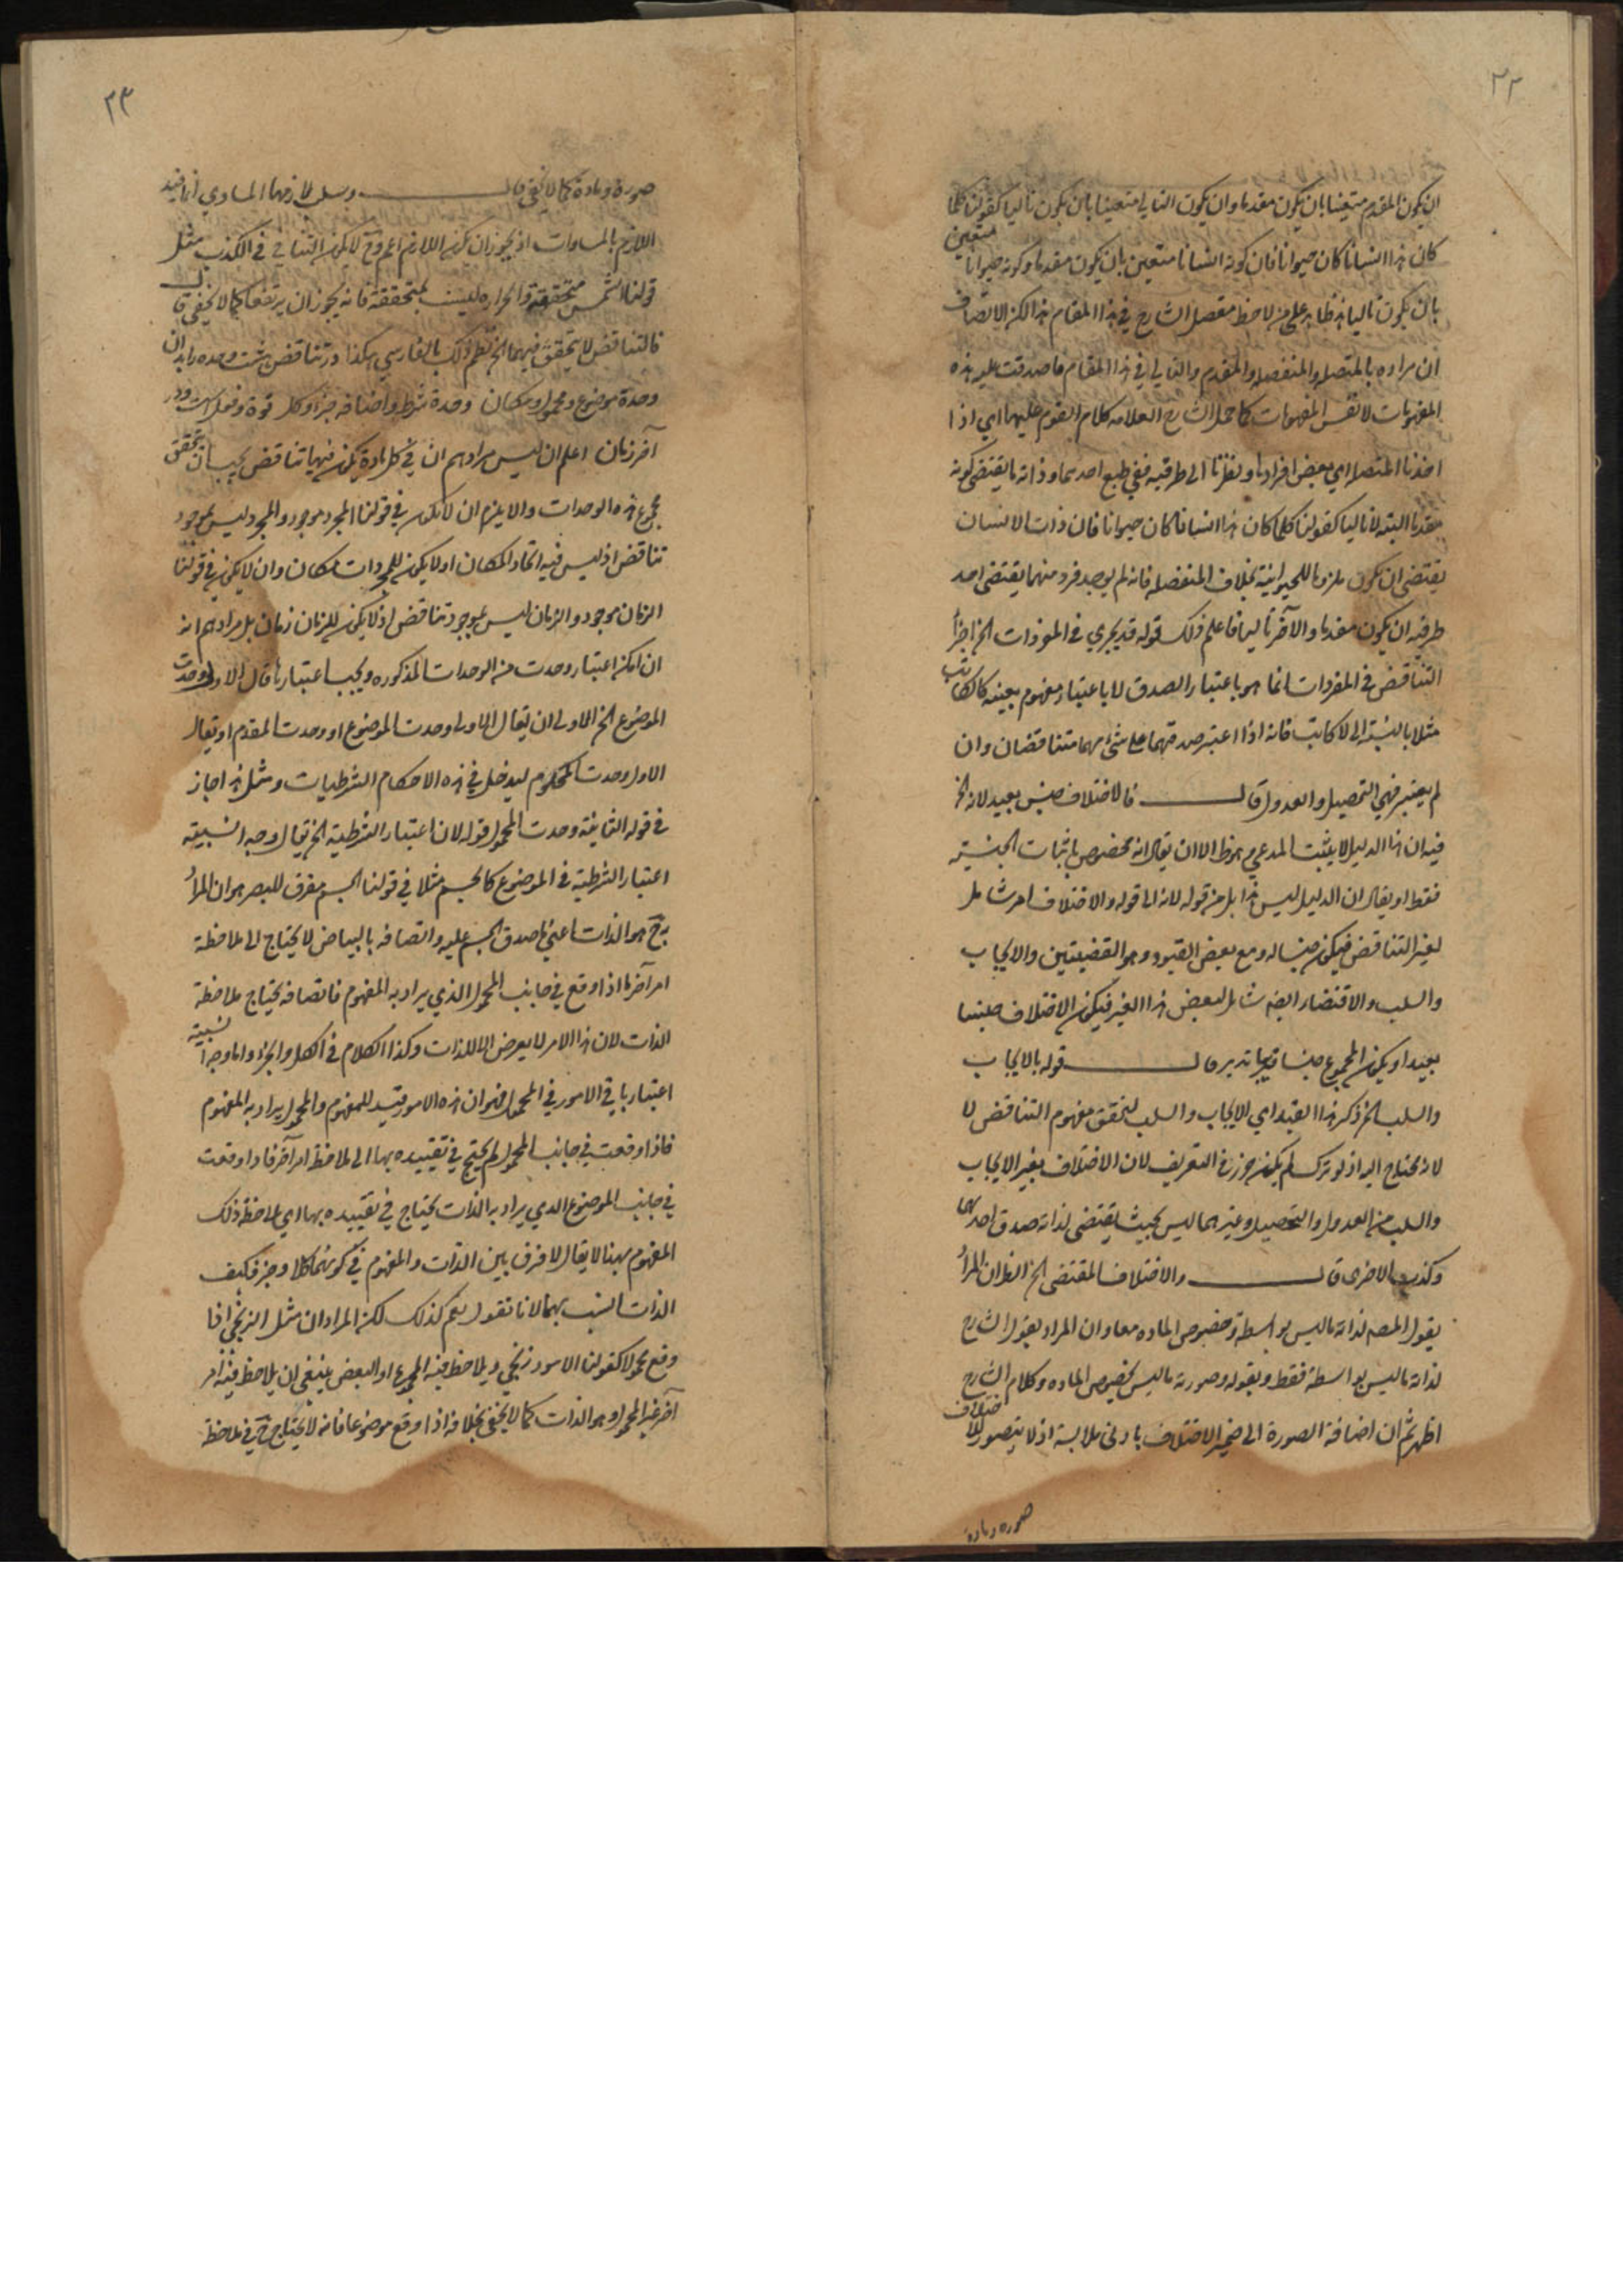 ٢٢
ان يكون المقدم متعينا بان يكون مقدما وان يكون التالي متعينا بان يكون تاليا كقولنا كلما
كان هذا انسانا كان حيوانا فان كونه انسانا متعين بان يكون مقدما وكونه حيوانا متعين
بان يكون تاليا هذا ظاهر على من لاحظ مفصل الشارح في هذا المقام هذا لكن الانصاف
ان مراده بالمتصله والمنفصله والمقدم والتالي في هذا المقام ما صدقت عليه هذه
المفهومات لا نفس المفهومات كما حمل الشارح العلامه كلام القوم عليها اي اذا
اخذنا المتصله اي بعض افرادها ونظرنا الى طرفيه ففي طبع احدهما وذاته ما يقتضي كونه
مقدما البته لا تاليا كقولنا كلما كان هذا انسانا كان حيوانا فان ذات الانسان
يقتضي ان يكون ملزوما للحيوانية بخلاف المنفصله فانه لم يوجد فرد منهما يقتضي احد
طرفيه ان يكون مقدما والآخر تاليا فاعلم ذلك قوله قد يجري في المفردات الخ اجزأ
التناقض في المفردات انما هو باعتبار الصدق لا باعتبار مفهوم بعينه كالكاتب
مثلا بالنسبة الى لا كاتب فانه اذا اعتبر صدقهما على شئ فهما متناقضان وان
لم يعتبر فهي التحصيل والعدول قال فالاختلاف جنس بعيد لانه الخ
فيه ان هذا الدليل لا يثبت المدعى هو ظ الا ان يقال انه مخصوص باثبات الجنسية
فقط او يقال ان الدليل ليس هذا بل من قوله لانه الى قوله والاختلاف امر شامل
لغير التناقض فيكون جنسا له ومع بعض القيود وهو القضيتين والايجاب
والسلب والاقتضاء ايضا شامل لبعض هذا الغير فيكون الاختلاف جنسا
بعيدا ويكون المجموع جنسا قريبا تدبر قال قوله بالايجاب
والسلب الخ ذكر هذا القيد اي الايجاب والسلب لتحقق مفهوم التناقض لا
لانه محتاج اليه اذ لو ترك لم يكن حزز في التعريف لان الاختلاف بغير الايجاب
والسلب من العدول والتحصيل وغيرهما ليس بحيث يقتضي لذاته صدق احدهما
وكذب الاخرى قال والاختلاف المقتضى الخ الظ ان المراد
بقول المصم لذاته ما ليس بواسطة وخصوص الماده معا وان المراد بقول الشارح
لذاته ما ليس بواسطة فقط وبقوله وصورته ما ليس بخصوص الماده وكلام الشارح
اظهر ثم ان اضافة الصورة الى ضمير الاختلاف بادنى ملابسة اذ لا يتصور للاختلاف
صوره وماده
٢٣
صورة ومادة كما لا يخفى قال وسلب لازمها المساوي انما قيد
اللازم بالمساوات اذ يجوز ان يكون اللازم اعم وح لا يكون التنافي في الكذب مثل
قولنا الشمس متحققة والحراره ليست بمتحققة فانه يجوز ان يرتفعا كما لا يخفى قال
فالتناقض لا يتحقق فيهما الخ نظم ذلك بالفارسي هكذا در تناقض هشت وحده را بدان
وحدة موضوع ومحمول ومكان وحدة شرط واضافه جزؤ وكل قوة وفعل است در
آخر زمان اعلم ان ليس مرادهم ان في كل مادة يكون فيها تناقض يجب ان يتحقق
مجموع هذه الوحدات والا يلزم ان لا يكون في قولنا المجرد موجود والمجرد ليس بموجود
تناقض اذ ليس فيه اتحاد المكان اذ لا يكون للمجردات مكان وان لا يكون في قولنا
الزمان موجود والزمان ليس بموجود تناقض اذ لا يكون للزمان زمان بل مرادهم انه
ان امكن اعتبار وحدت من الوحدات المذكوره ويجب اعتبارها قال الاولى وحدت
الموضوع الخ الاولى ان يقال الاولى وحدت الموضوع او وحدت المقدم او يقال
الاول وحدت المحكوم ليدخل في هذه الاحكام الشرطيات ومثل هذا جاز
في قوله الثانية وحدت المحمول قوله لان اعتبار الشرطية الخ يقال وجه انسبية
اعتبار الشرطية في الموضوع كالجسم مثلا في قولنا الجسم مفرق للبصر هو ان المراد
به ح هو الذات اعني ما صدق الجسم عليه واتصافه بالبياض لا يحتاج الى ملاحظة
امر آخر لما اذا وقع في جانب المحمول الذي يراد به المفهوم فاتصافه يحتاج ملاحظة
الذات لان هذا الامر لا يعرض الا للذات وكذا الكلام في الكل والجزء واما وجه انسبية
اعتبار باقي الامور في المحمول فهو ان هذه الامور قيد للمفهوم والمحمول يراد به المفهوم
فاذا وقعت في جانب المحمول لم يحتج في تقييده بها الى ملاحظة امر آخر فاذا وقعت
في جانب الموضوع الذي يراد به الذات يحتاج في تقييده بها اي ملاحظة ذلك
المفهوم بهنا لا يقال لا فرق بين الذات والمفهوم في كونهما كلا وجزء فكيف
الذات انسب بهما لانا نقول نعم كذلك لكن المراد ان مثل الزنجي اذا
وقع محمولا كقولنا الاسود زنجي ويلاحظ فيه المجموع او البعض ينبغي ان يلاحظ فيه امر
آخر غير المحمول وهو الذات كما لا يخفى بخلافه اذا وقع موضوعا فانه لا يحتاج ح في ملاحظة